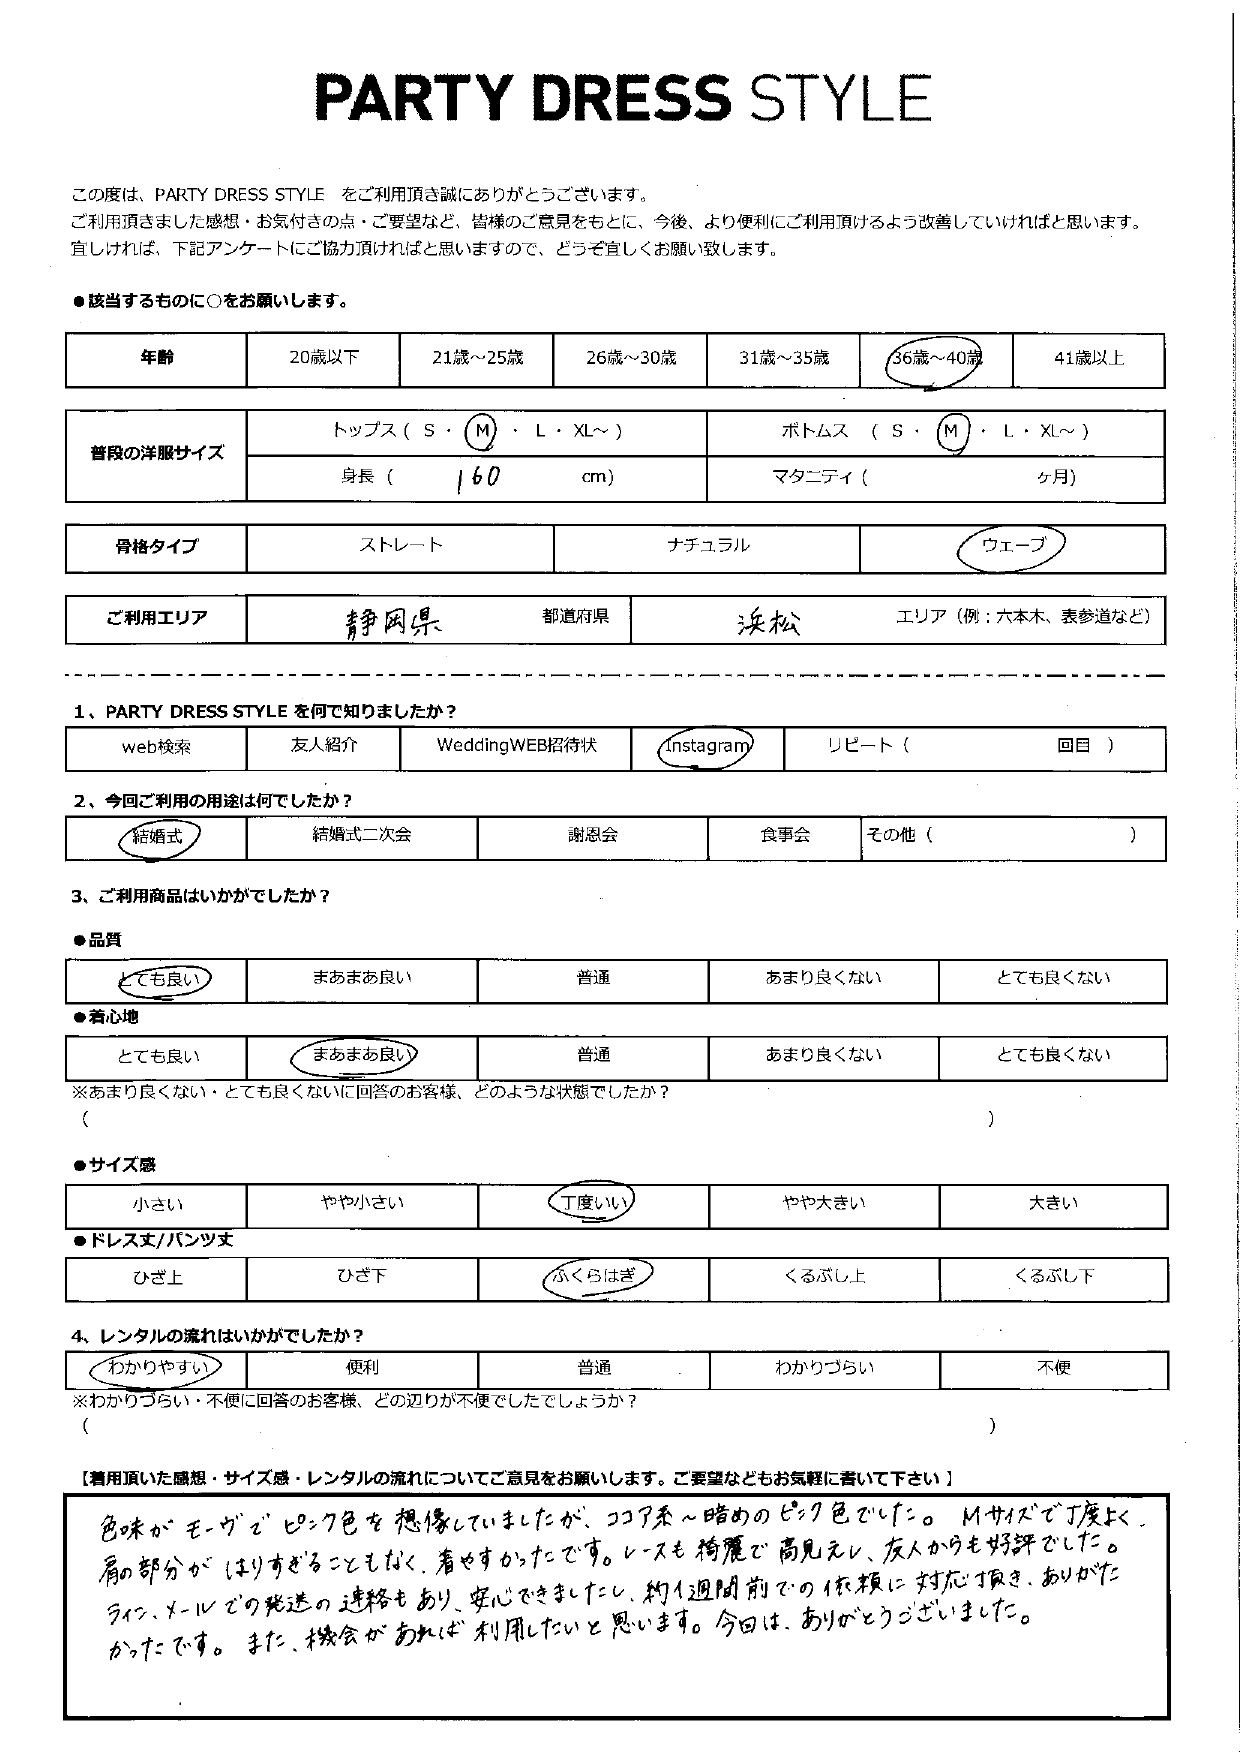 PARTY DRESS STYLE
この度は、PARTY DRESS STYLE をご利用頂き誠にありがとうございます。
ご利用頂きました感想・お気付きの点・ご要望など、皆様のご意見をもとに、今後、より便利にご利用頂けるよう改善していければと思います。
宜しければ、下記アンケートにご協力頂ければと思いますので、どうぞ宜しくお願い致します。
●該当するものに○をお願いします。
年齢 20歳以下 21歳～25歳 26歳～30歳 31歳～35歳 36歳～40歳 41歳以上
普段の洋服サイズ
トップス ( S ・ M ・ L ・ XL～ ) ボトムス ( S ・ M ・ L ・ XL～ )
身長 ( 160 cm) マタニティ ( ヶ月)
骨格タイプ ストレート ナチュラル ウェーブ
ご利用エリア 静岡県 都道府県 浜松 エリア（例：六本木、表参道など）
1、PARTY DRESS STYLE を何で知りましたか？
web検索 友人紹介 WeddingWEB招待状 Instagram リピート ( 回目 )
2、今回ご利用の用途は何でしたか？
結婚式 結婚式二次会 謝恩会 食事会 その他 ( )
3、ご利用商品はいかがでしたか？
●品質
とても良い まあまあ良い 普通 あまり良くない とても良くない
●着心地
とても良い まあまあ良い 普通 あまり良くない とても良くない
※あまり良くない・とても良くないに回答のお客様、どのような状態でしたか？
( )
●サイズ感
小さい やや小さい 丁度いい やや大きい 大きい
●ドレス丈/パンツ丈
ひざ上 ひざ下 ふくらはぎ くるぶし上 くるぶし下
4、レンタルの流れはいかがでしたか？
わかりやすい 便利 普通 わかりづらい 不便
※わかりづらい・不便に回答のお客様、どの辺りが不便でしたでしょうか？
( )
【着用頂いた感想・サイズ感・レンタルの流れについてご意見をお願いします。ご要望などもお気軽に書いて下さい 】
色味がモーヴでピンク色を想像していましたが、ココア系～暗めのピンク色でした。Mサイズで丁度よく、
肩の部分がはりすぎることもなく、着やすかったです。レースも綺麗で高見えし、友人からも好評でした。
ライン、メールでの発送の連絡もあり、安心できましたし、約1週間前での依頼に対応頂き、ありがた
かったです。また、機会があれば利用したいと思います。今回は、ありがとうございました。